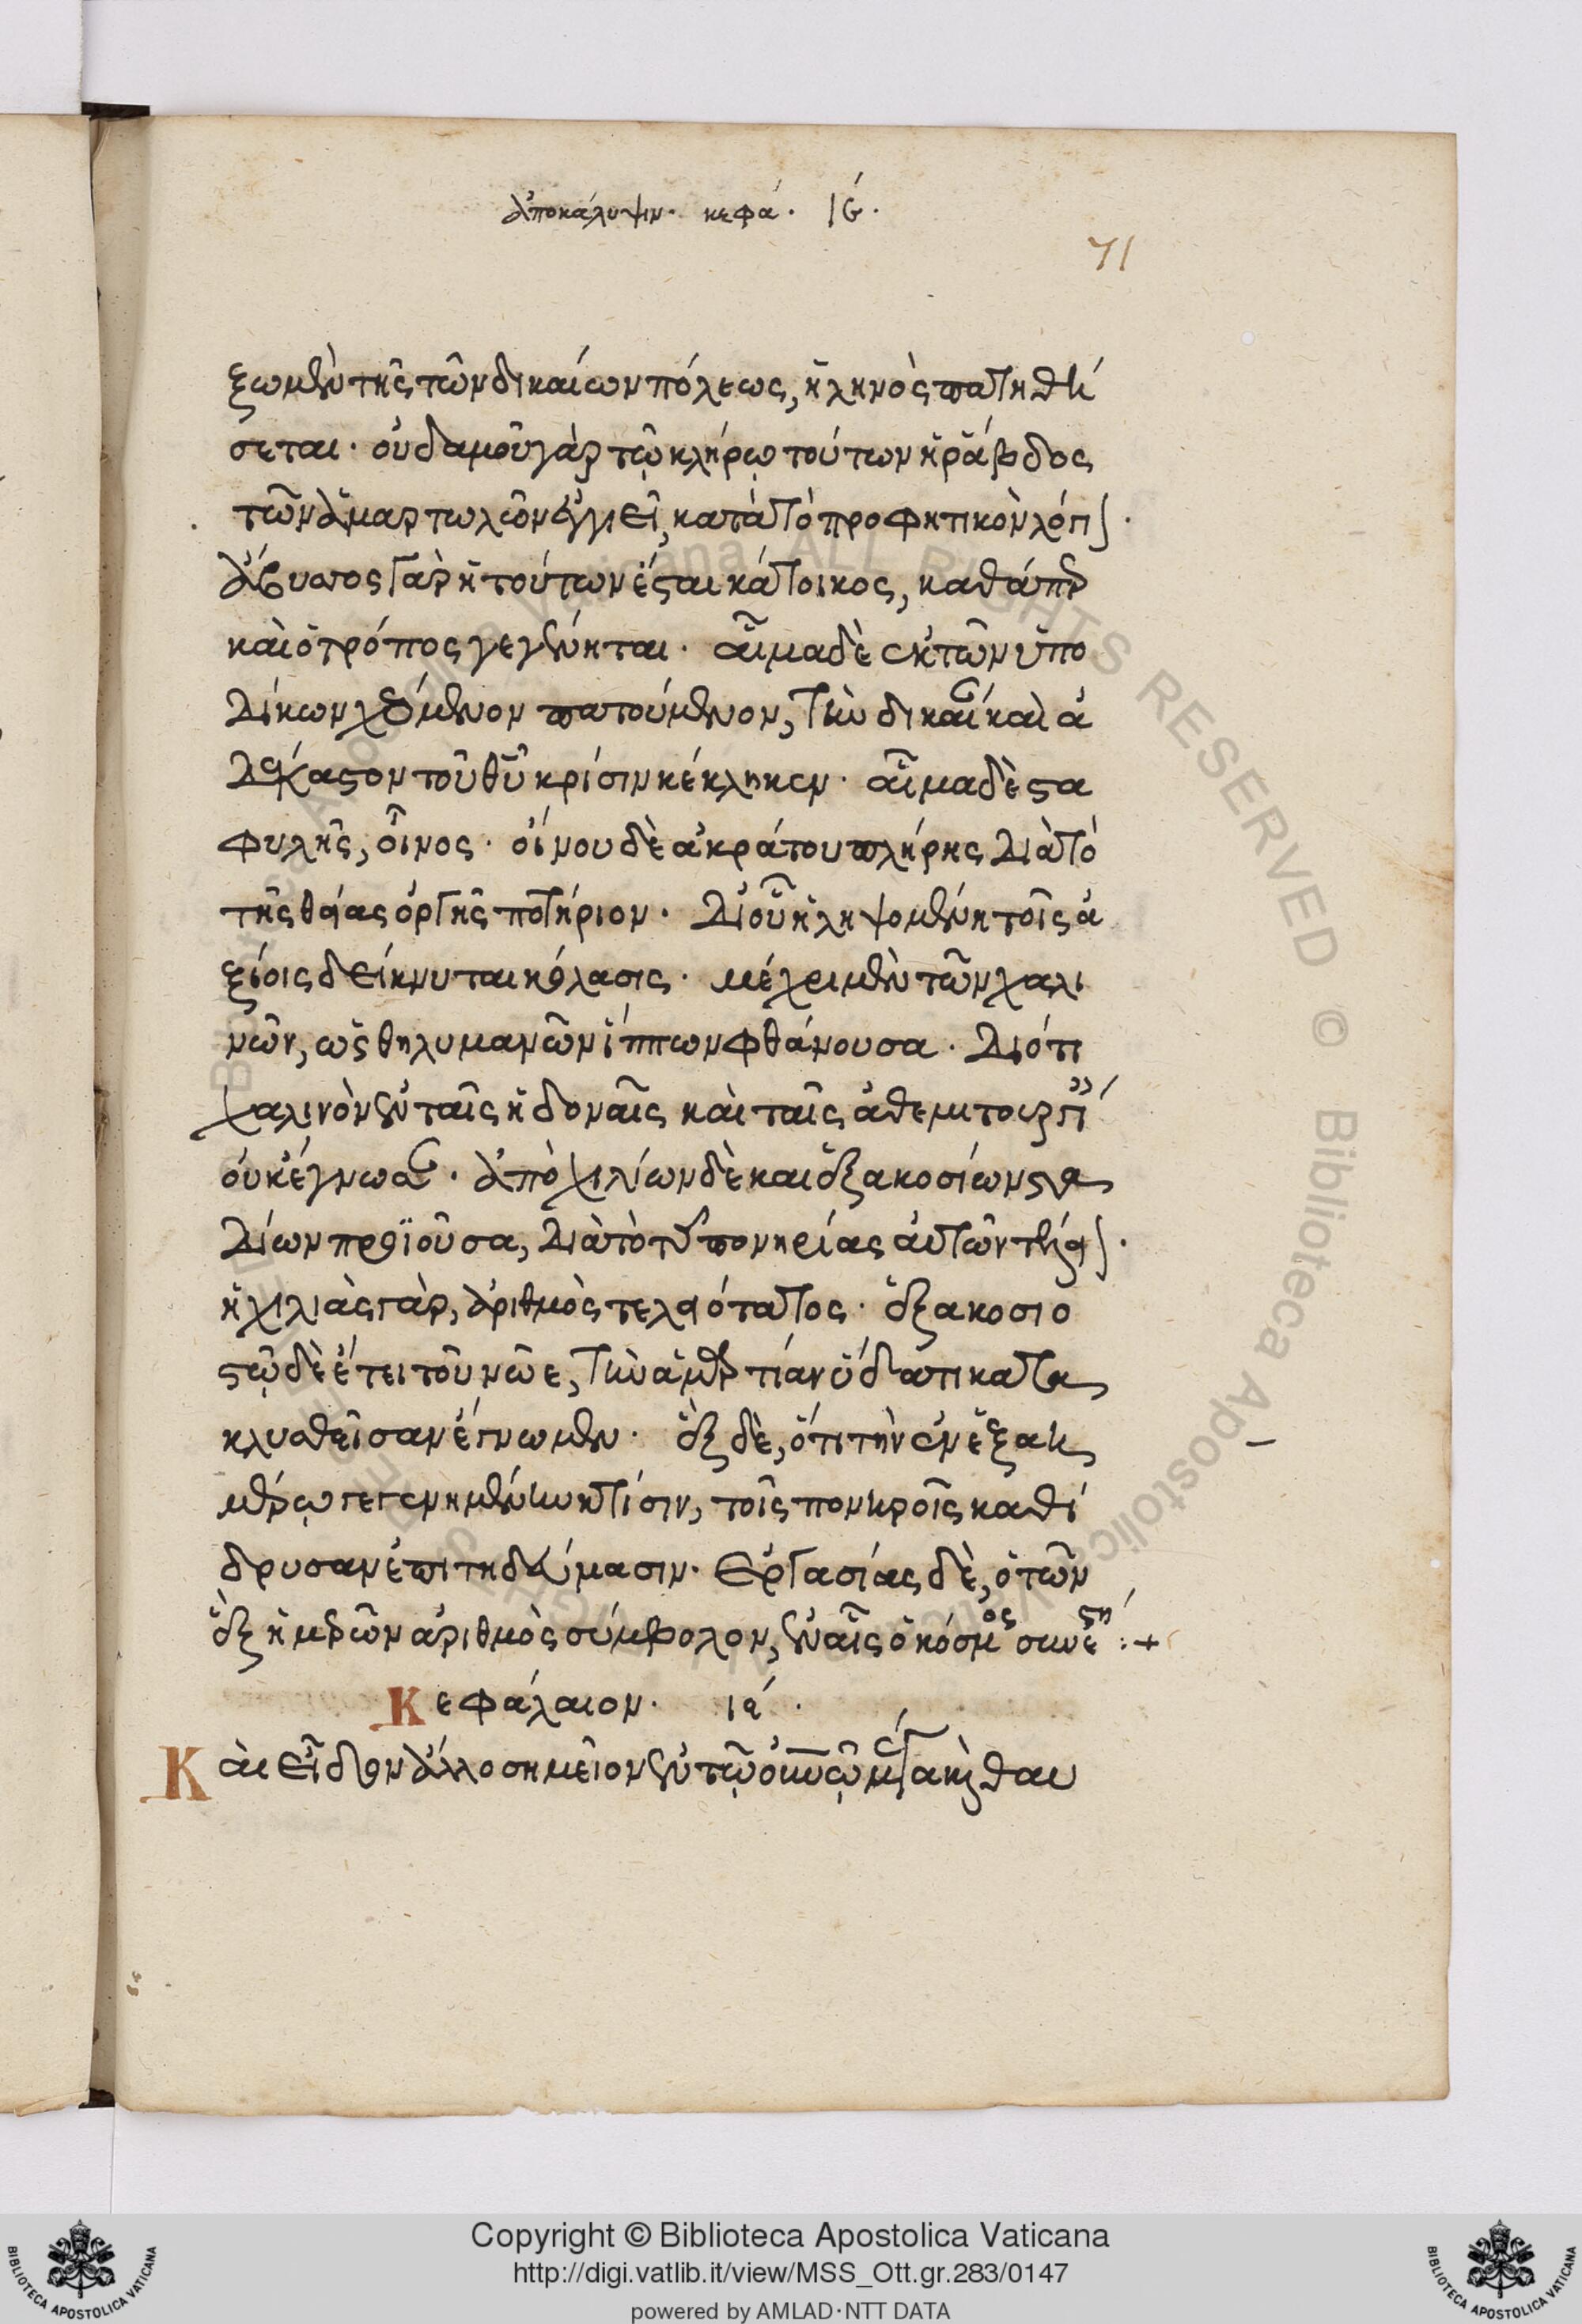 ἀποκάλυψιν. κεφά. ιϛ́.
71
ξωμὲν τῆς τῶν δικαίων πόλεως, ἡ ληνὸς πατηθή
σεται. οὐδαμοῦ γὰρ τῷ κλήρῳ τούτων ἡ ῥάβδος
τῶν ἁμαρτωλῶν ἐγγιεῖ, κατὰ τὸ προφητικὸν λόγιον.
ἄβυσσος γὰρ ἡ τούτων ἔσται κάτοικος, καθάπερ
καὶ ὁ τρόπος γεγένηται. αἷμα δὲ ἐκ τῶν ὑπο
δίκων χεόμενον πατούμενον, τὴν δικαίαν καὶ ἀ
δέκαστον τοῦ θυ κρίσιν κέκληκεν. αἷμα δὲ στα
φυλῆς, οἶνος. οἴνου δὲ ἀκράτου πλήρης διὰ τὸ
τῆς θείας ὀργῆς ποτήριον. διὸ οὖν ἡ ληψομένη τοῖς ἀ
ξίοις δείκνυται κόλασις. μέχρι μὲν τῶν χαλι
νῶν, ὡς θηλυμανῶν ἵππων φθάνουσα. διότι
χαλινὸν ἐν ταῖς ἡδοναῖς καὶ ταῖς
οὐκ ἔγνωσαν. ἀπὸ χιλίων δὲ καὶ ἑξακοσίων στα
δίων προϊοῦσα, διὰ τὸ τῆς πονηρίας αὐτῶν τέλειον.
ἡ χιλιὰς γὰρ, ἀριθμὸς τελειότατος. ἑξακοσιο
στῷ δὲ ἔτει τοῦ νῶε, τὴν ἁμαρτίαν ὕδατι κατα
κλυσθεῖσαν ἔγνωμεν. ἓξ δὲ, ὅτι τὴν ἐν ἑξαη
μέρῳ γεγενημένην κτίσιν, τοῖς πονηροῖς καθύ
βρυσαν ἐπιτηδεύμασιν. ἐργασίας δὲ, ὁ τῶν
ἓξ ἡμερῶν ἀριθμὸς σύμβολον, ἐν αἷς ὁ κόσμος συνέστη :+
Κεφάλαιον. ιϛ́.
Καὶ εἶδον ἄλλο σημεῖον ἐν τῷ οὐνῷ μέγα καὶ θαυ
Copyright © Biblioteca Apostolica Vaticana
http://digi.vatlib.it/view/MSS_Ott.gr.283/0147
powered by AMLAD·NTT DATA